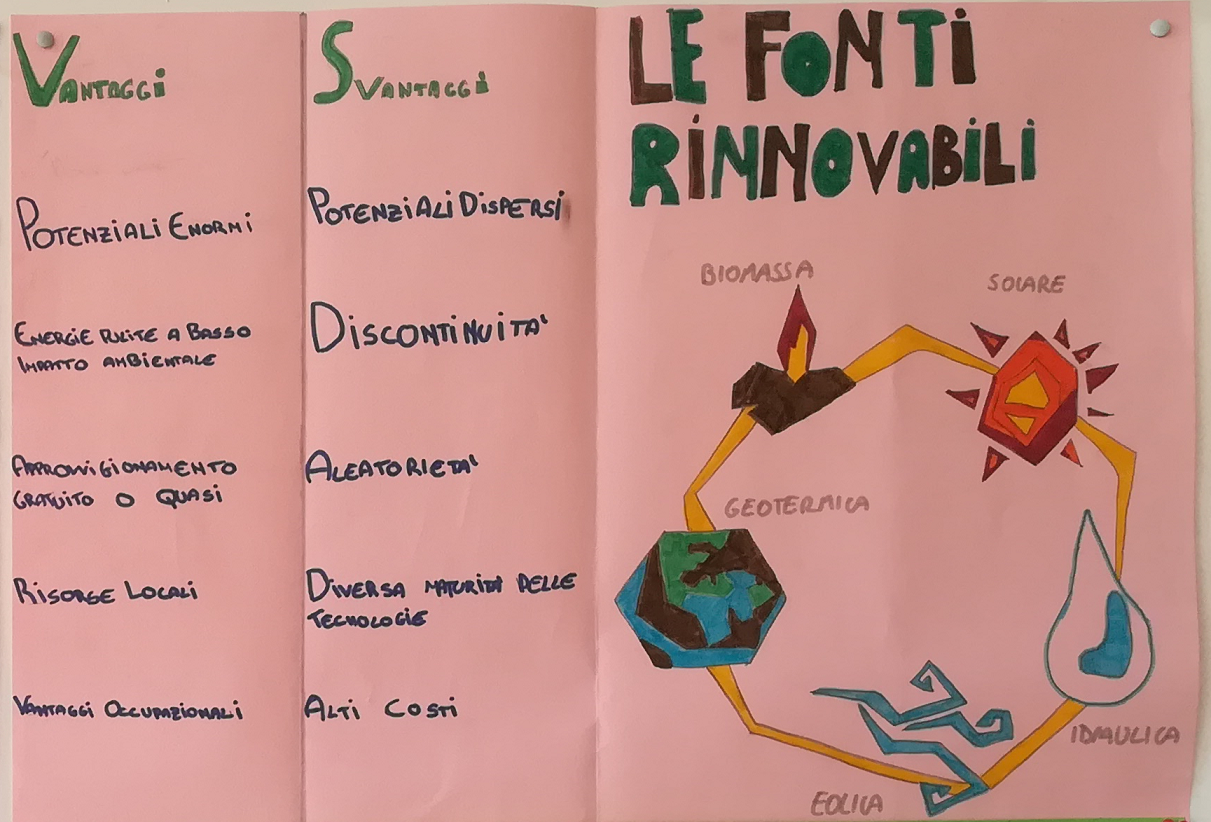 VANTAGGI
POTENZIALI ENORMI
ENERGIE PULITE A BASSO
IMPATTO AMBIENTALE
APPROVVIGIONAMENTO
GRATUITO O QUASI
RISORSE LOCALI
VANTAGGI OCCUPAZIONALI
SVANTAGGI
POTENZIALI DISPERSI
DISCONTINUITA'
ALEATORIETA'
DIVERSA MATURITÀ DELLE
TECNOLOGIE
ALTI COSTI
LE FONTI
RINNOVABILI
BIOMASSA
SOLARE
GEOTERMICA
IDRAULICA
EOLICA